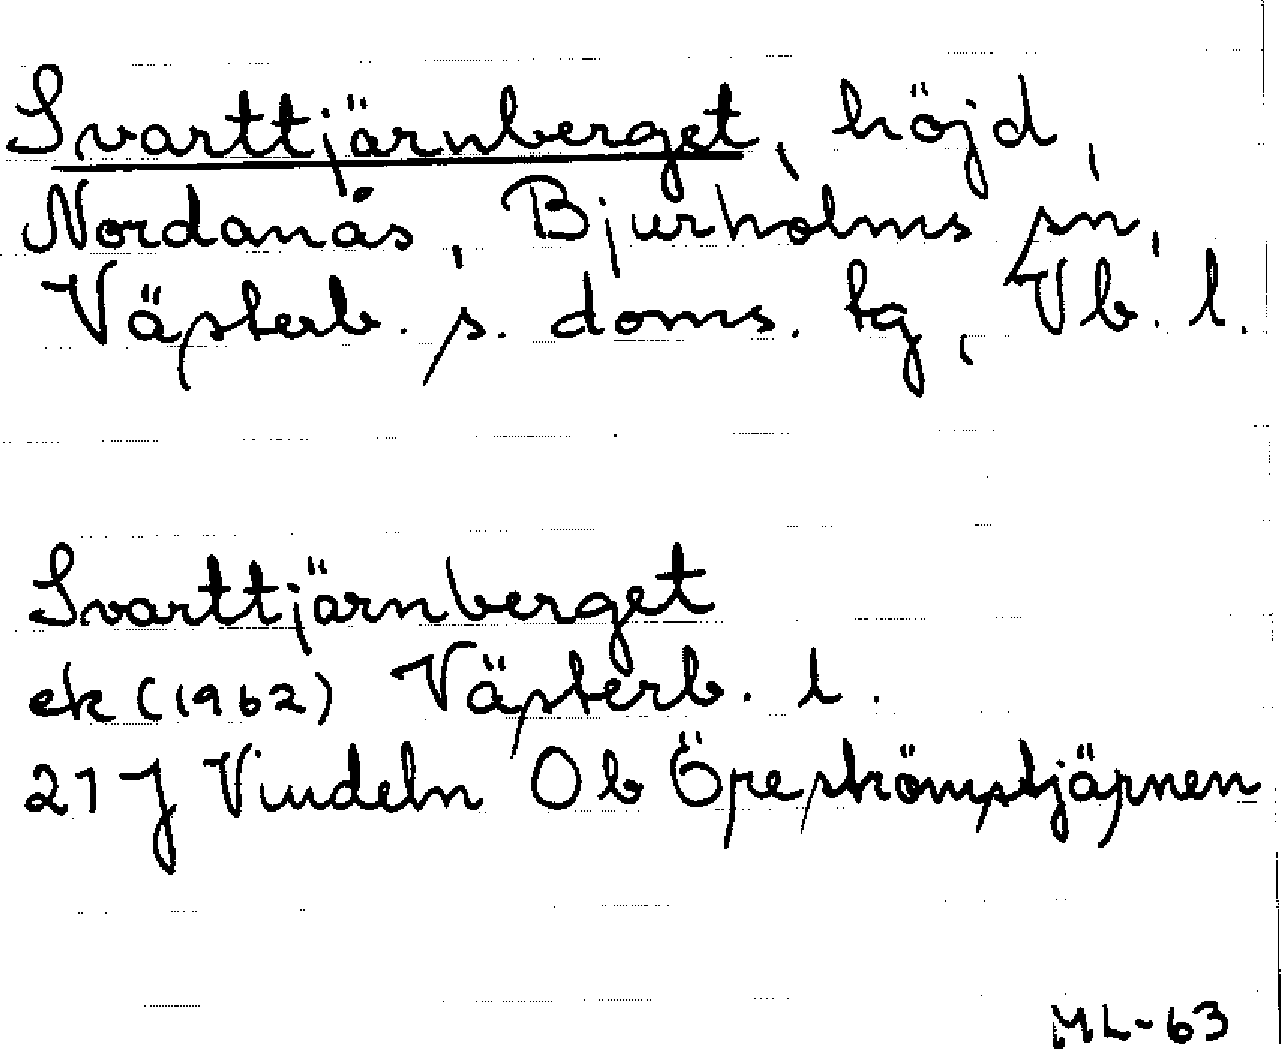 Svarttjärnberget, höjd,
Nordanås, Bjurholms sn,
Västerb. s. doms. tg, Vb. l.
Svarttjärnberget
ek (1962) Västerb. l.
21 J Vindeln Ob Öreströmstjärnen
ML-63